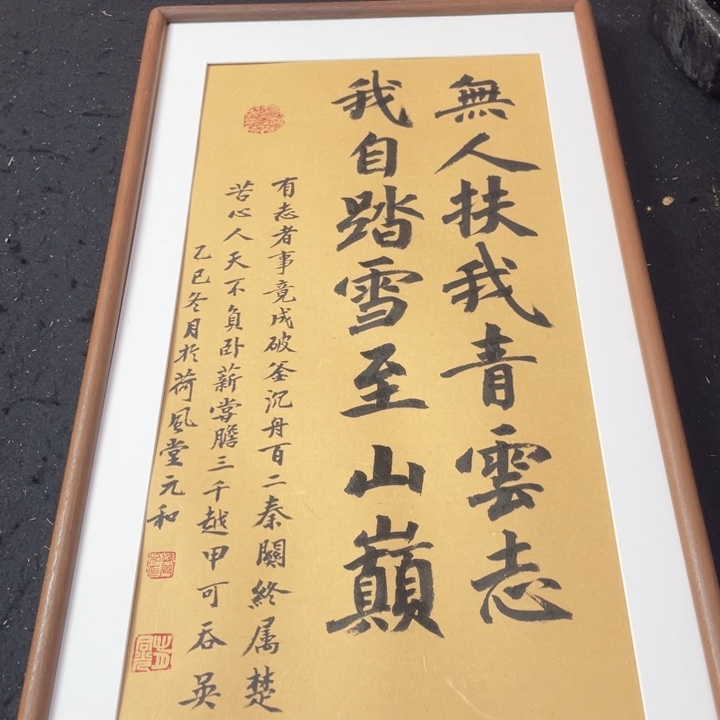 無人扶我青雲志
我自踏雪至山巔
有志者事竟成破釜沉舟百二秦關終属楚
苦心人天不負卧薪嘗膽三千越甲可吞吴
乙巳冬月於荷風堂元和